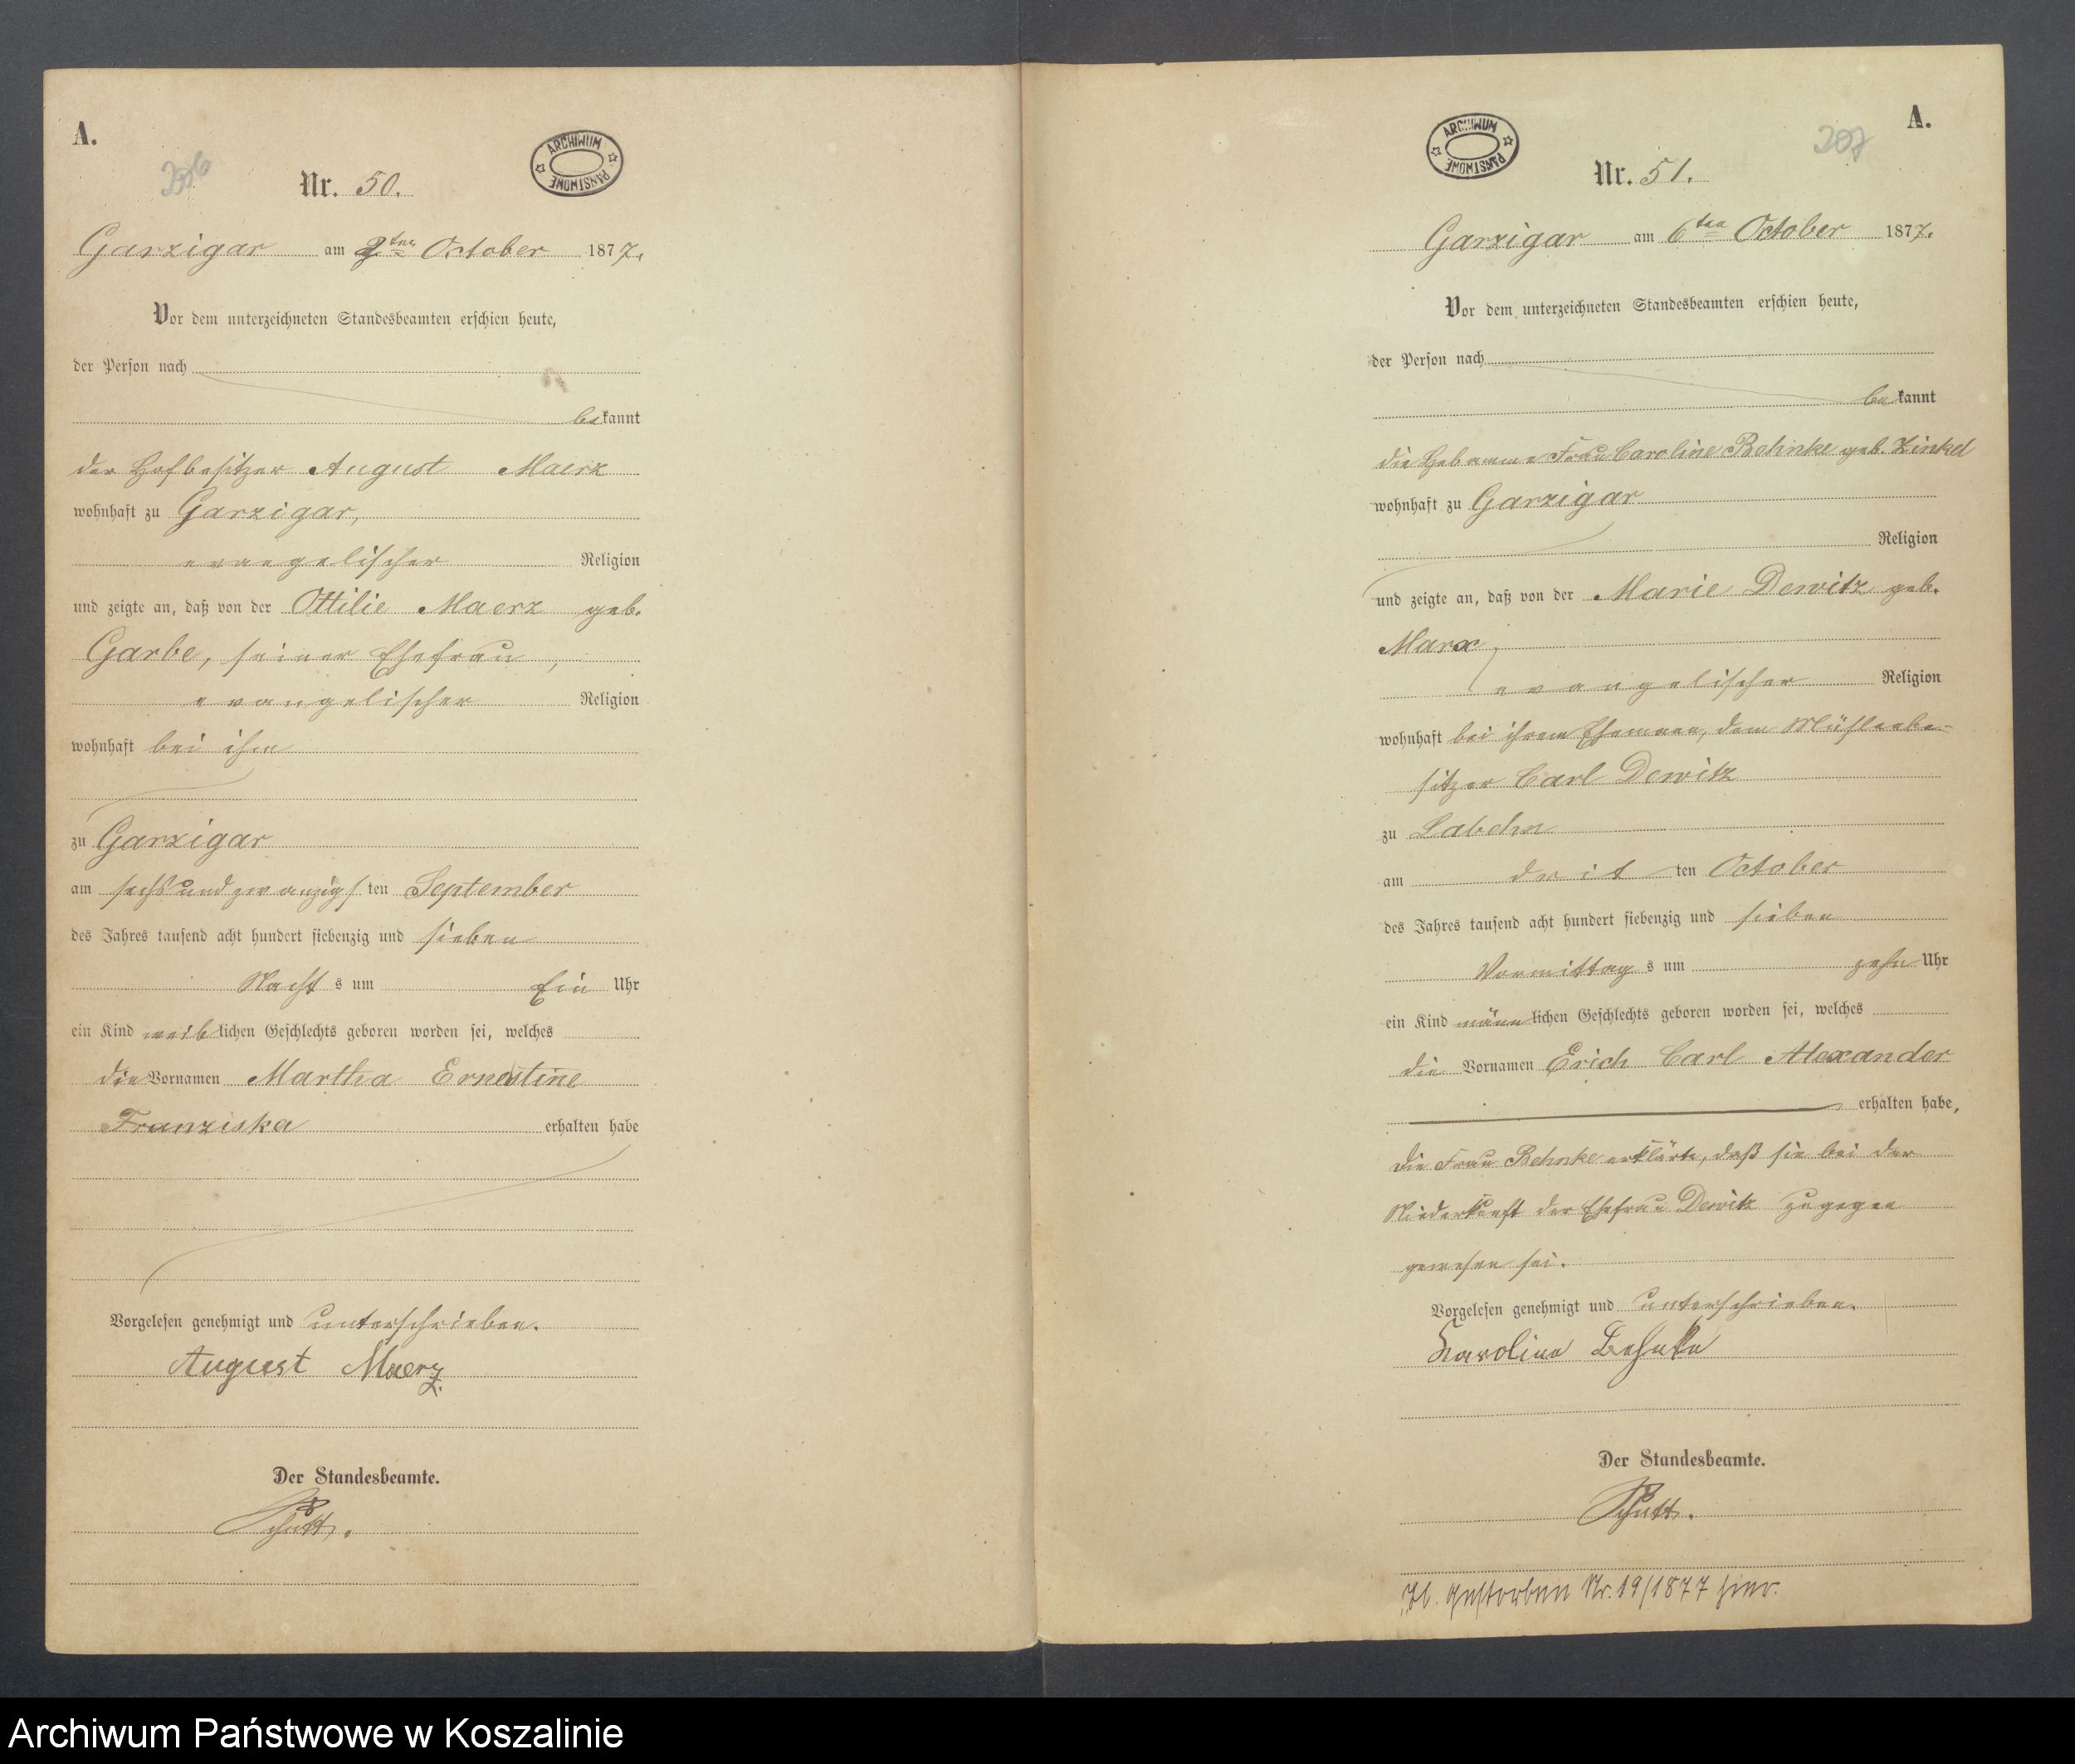 A.
206
Nr. 50.
ARCHIWUM PAŃSTWOWE
Garzigar am 2ten October 1877.
Vor dem unterzeichneten Standesbeamten erschien heute,
der Person nach
bekannt
der Hofbesitzer August Maerz
wohnhaft zu Garzigar,
evangelischer Religion
und zeigte an, daß von der Ottilie Maerz geb.
Garbe, seiner Ehefrau,
evangelischer Religion
wohnhaft bei ihm
zu Garzigar
am sechsundzwanzigsten September
des Jahres tausend acht hundert siebenzig und sieben
Nachts um Ein Uhr
ein Kind weiblichen Geschlechts geboren worden sei, welches
die Vornamen Martha Ernestine
Franziska erhalten habe
Vorgelesen genehmigt und unterschrieben.
August Maerz.
Der Standesbeamte.
Schütt.
A.
207
ARCHIWUM PAŃSTWOWE
Nr. 51.
Garzigar am 6ten October 1877.
Vor dem unterzeichneten Standesbeamten erschien heute,
der Person nach
bekannt
die Hebamme Frau Caroline Behnke geb. Zinkel
wohnhaft zu Garzigar
Religion
und zeigte an, daß von der Marie Dewitz geb.
Marx,
evangelischer Religion
wohnhaft bei ihrem Ehemann, dem Mühlenbe-
sitzer Carl Dewitz
zu Labehn
am dritten October
des Jahres tausend acht hundert siebenzig und sieben
Vormittags um zehn Uhr
ein Kind männlichen Geschlechts geboren worden sei, welches
die Vornamen Erich Carl Alexander
erhalten habe,
Die Frau Behnke erklärte, daß sie bei der
Niederkunft der Ehefrau Dewitz zugegen
gewesen sei.
Vorgelesen genehmigt und unterschrieben.
Karoline Behnke
Der Standesbeamte.
Schütt.
gestorben Nr. 19/1877 hier.
Archiwum Państwowe w Koszalinie